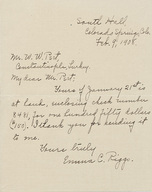 South Hall
Colorado Springs, Colo.
Feb. 9, 1918.
Mr. W. W. Peet
Constantinople, Turkey.
My dear Mr. Peet.
Yours of January 21st is
at hand, enclosing check number
for one hundred fifty dollars
($150). I thank you for sending it
to me.
Yours truly
Emma C.